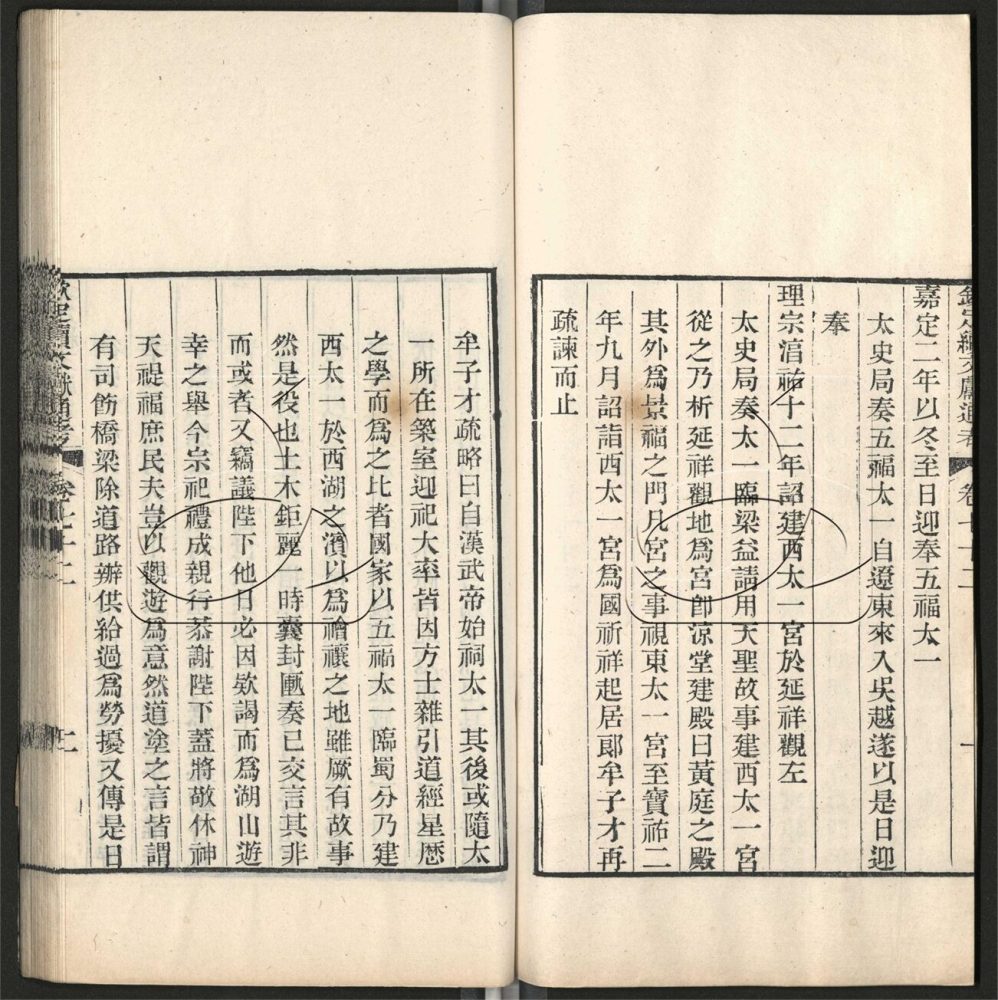 嘉定二年以冬至日迎奉五福太一
太史局奏五福太一自遼東來入吳越遂以是日迎
奉
理宗淳祐十二年詔建西太一宮於延祥觀左
太史局奏太一臨梁益請用天聖故事建西太一宮
從之乃析延祥觀地爲宮卽涼堂建殿曰黃庭之殿
其外爲景福之門凡宮之事視東太一宮至寶祐二
年九月詔詣西太一宮爲國祈祥起居郞牟子才再
疏諫而止
牟子才疏略曰自漢武帝始祠太一其後或隨太
一所在築室迎祀大率皆因方士雜引道經星厯
之學而爲之比者國家以五福太一臨蜀分乃建
西太一於西湖之濱以爲禬禳之地雖厥有故事
然是役也土木鉅麗一時囊封匭奏已交言其非
而或者又竊議陛下他日必因欵謁而爲湖山遊
幸之舉今宗祀禮成親行恭謝陛下蓋將敬休神
天禔福庶民夫豈以觀遊爲意然道塗之言皆謂
有司飭橋梁除道路辦供給過爲勞擾又傳是日
欽定續文獻通考 卷七十二